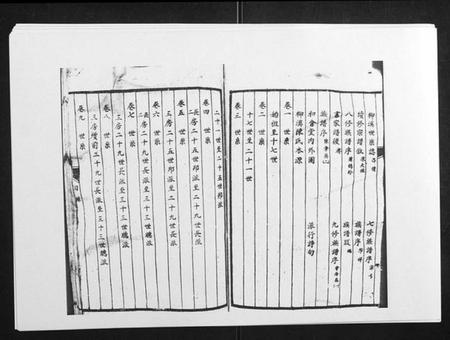 柳溪世系誌
七修族譜序
續修宗譜敘
族譜序
八修族譜序
族譜跋
書家譜後
九修族譜序
族譜序
初會堂內外圖
派行詩句
柳溪陳氏本源
卷一 世系
始祖至十七世
卷二 世系
十七世至二十一世
卷三 世系
二十一世至二十五世
卷四 世系
長房二十五世郎派至二十九世長派
卷五 世系
三房二十五世郎派至二十九世長派
卷六 世系
長房二十九世長派至三十三世聰派
卷七 世系
三房二十九世長派至三十三世聰派
卷八 世系
三房續前二十九世長派至三十三世聰派
卷九 世系
目錄